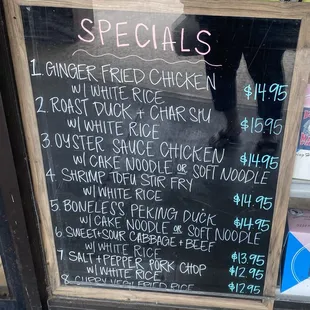 SPECIALS
1. GINGER FRIED CHICKEN
W/ WHITE RICE $14.95
2. ROAST DUCK + CHAR SIU
W/ WHITE RICE $15.95
3. OYSTER SAUCE CHICKEN
W/ CAKE NOODLE OR SOFT NOODLE $14.95
4. SHRIMP TOFU STIR FRY
W/ WHITE RICE $14.95
5. BONELESS PEKING DUCK
W/ CAKE NOODLE OR SOFT NOODLE $14.95
6. SWEET+SOUR CABBAGE + BEEF
W/ WHITE RICE $13.95
7. SALT + PEPPER PORK CHOP
W/ WHITE RICE $12.95
8. CURRY VEGI FRIED RICE $12.95